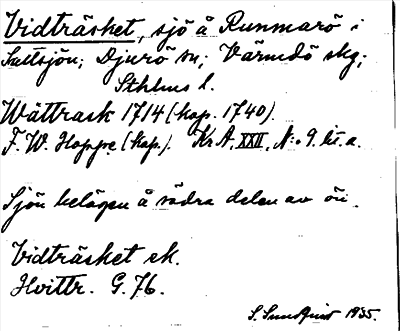 Vidträsket, sjö å Runmarö i
Saltsjön; Djurö sn; Värmdö skg;
Sthlms l.
Wättrask 1714 (kop. 1740).
F. W. Hoppe (kop.). Kr A. XXII. N:o 9. lit. a.
Sjön belägen å södra delen av ön.
Vidträsket ek.
Hvittr. G. 76.
S. Sundqvist 1935.